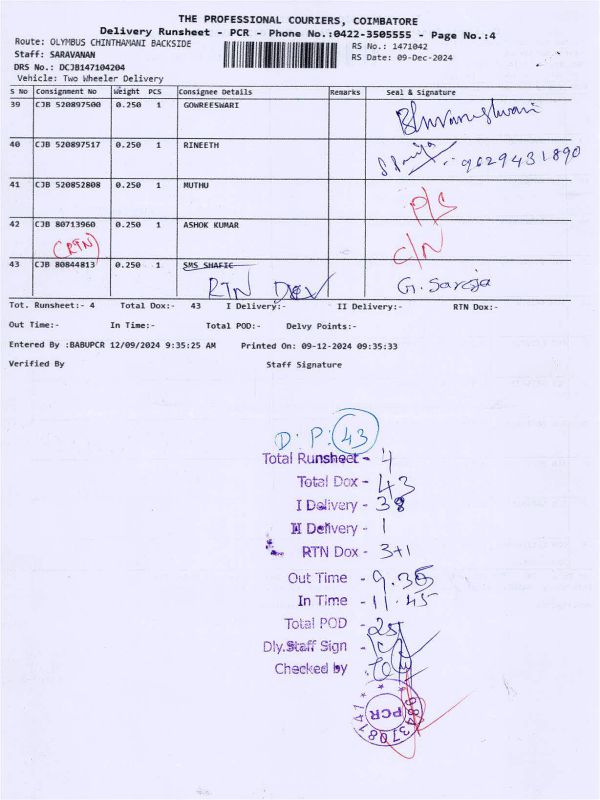 THE PROFESSIONAL COURIERS, COIMBATORE
Delivery Runsheet - PCR - Phone No.:0422-3505555 - Page No.:4
Route: OLYMBUS CHINTHAMANI BACKSIDE
RS No.: 1471042
Staff: SARAVANAN
RS Date: 09-Dec-2024
DRS No.: DCJB147104204
Vehicle: Two Wheeler Delivery
S No Consignment No Weight PCS Consignee Details Remarks Seal & Signature
39 CJB 520897500 0.250 1 GOWREESWARI Bhuvaneshwari
40 CJB 520897517 0.250 1 RINEETH 9629431890
41 CJB 520852808 0.250 1 MUTHU P/S
42 CJB 80713960 0.250 1 ASHOK KUMAR C/N
(RTN)
43 CJB 80844813 0.250 1 SMS SHAFIC G. Saroja
RTN DOX
Tot. Runsheet:- 4 Total Dox:- 43 I Delivery:- II Delivery:- RTN Dox:-
Out Time:- In Time:- Total POD:- Delvy Points:-
Entered By :BABUPCR 12/09/2024 9:35:25 AM Printed On: 09-12-2024 09:35:33
Verified By Staff Signature
D. P: 43
Total Runsheet - 4
Total Dox - 43
I Delivery - 38
II Delivery - 1
RTN Dox - 3+1
Out Time - 9.35
In Time - 11.45
Total POD - 25
Dly.Staff Sign -
Checked by
PCR